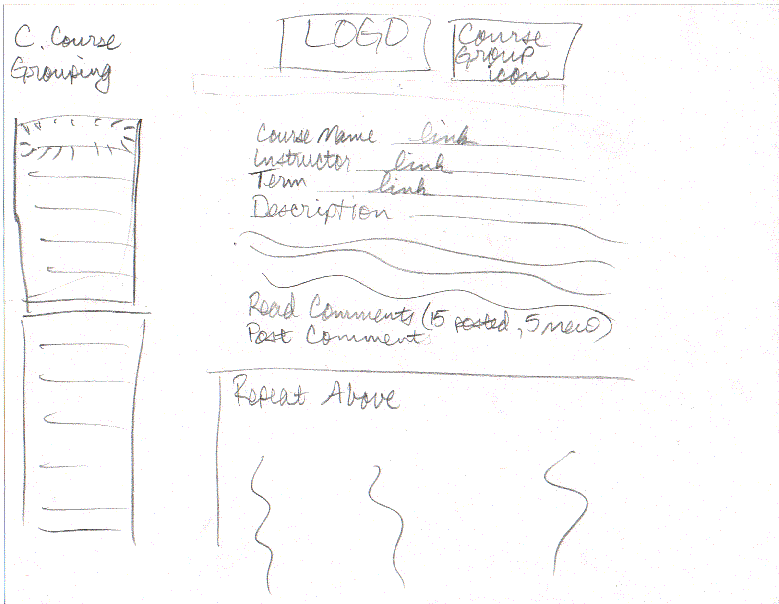 C. Course
Grouping
LOGO
Course
Group
icon
Course Name link
Instructor link
Term link
Description
Read Comments (15 posted, 5 new)
Post Comment
Repeat Above